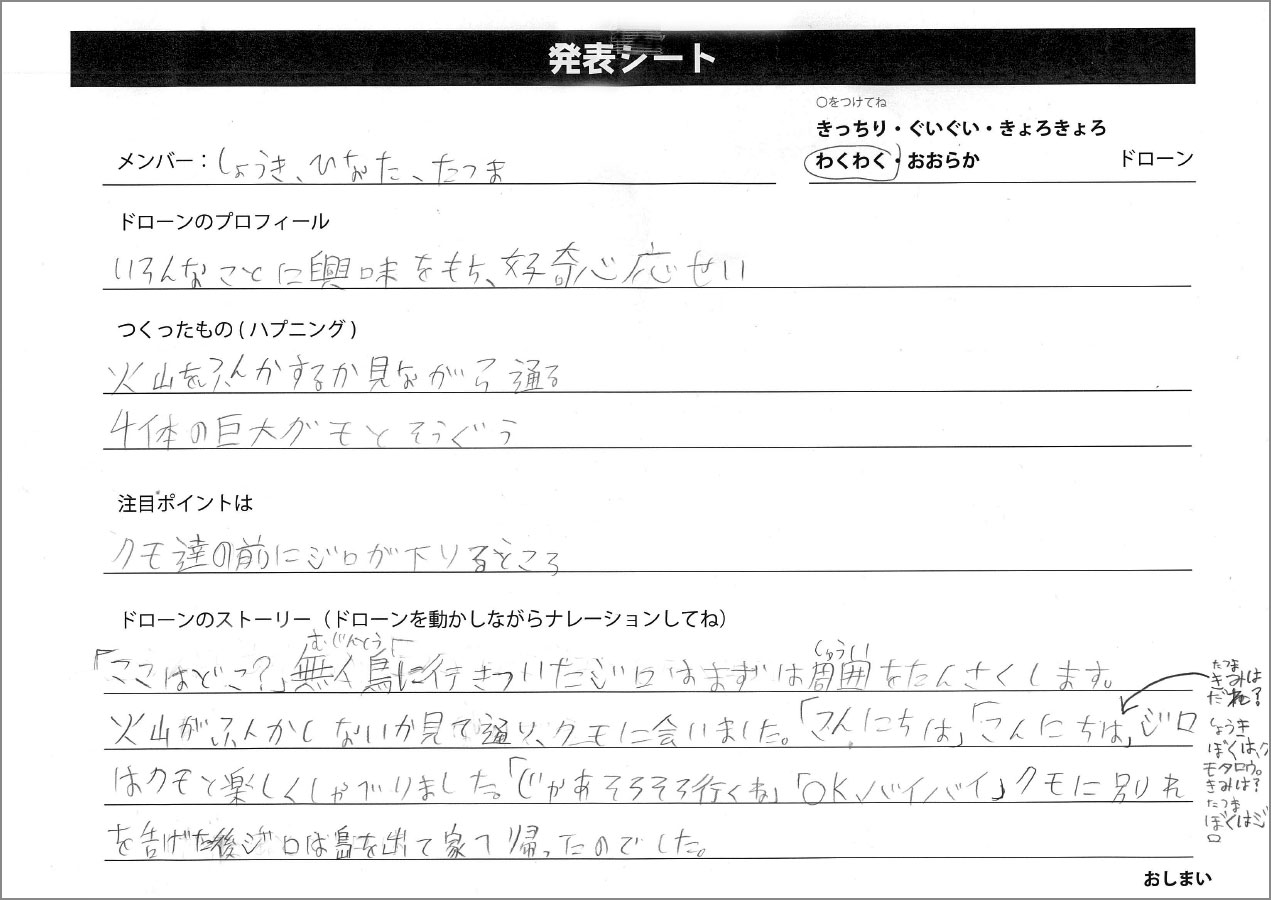 発表シート
○をつけてね
きっちり・ぐいぐい・きょろきょろ
わくわく・おおらか ドローン
メンバー：しょうき、ひなた、たつま
ドローンのプロフィール
いろんなことに興味をもち、好奇心応せい
つくったもの(ハプニング)
火山をふんかするか見ながら通る
4体の巨大グモとそうぐう
注目ポイントは
クモ達の前にジロが下りるところ
ドローンのストーリー（ドローンを動かしながらナレーションしてね）
むじんとう
「ここはどこ?」無人島に行きついたジロはまずは周囲をたんさくします。
しゅうい
火山がふんかしないか見て通り、クモに会いました。「こんにちは」「こんにちは」ジロ
はクモと楽しくしゃべりました。「じゃあそろそろ行くね」「OK、バイバイ」クモに別れ
を告げた後ジロは島を出て家て帰ったのでした。
たつま
きみは
だれ?
しょうき
ぼくは、ク
モタロウ。
きみは?
たつま
ぼくはジ
ロ
おしまい